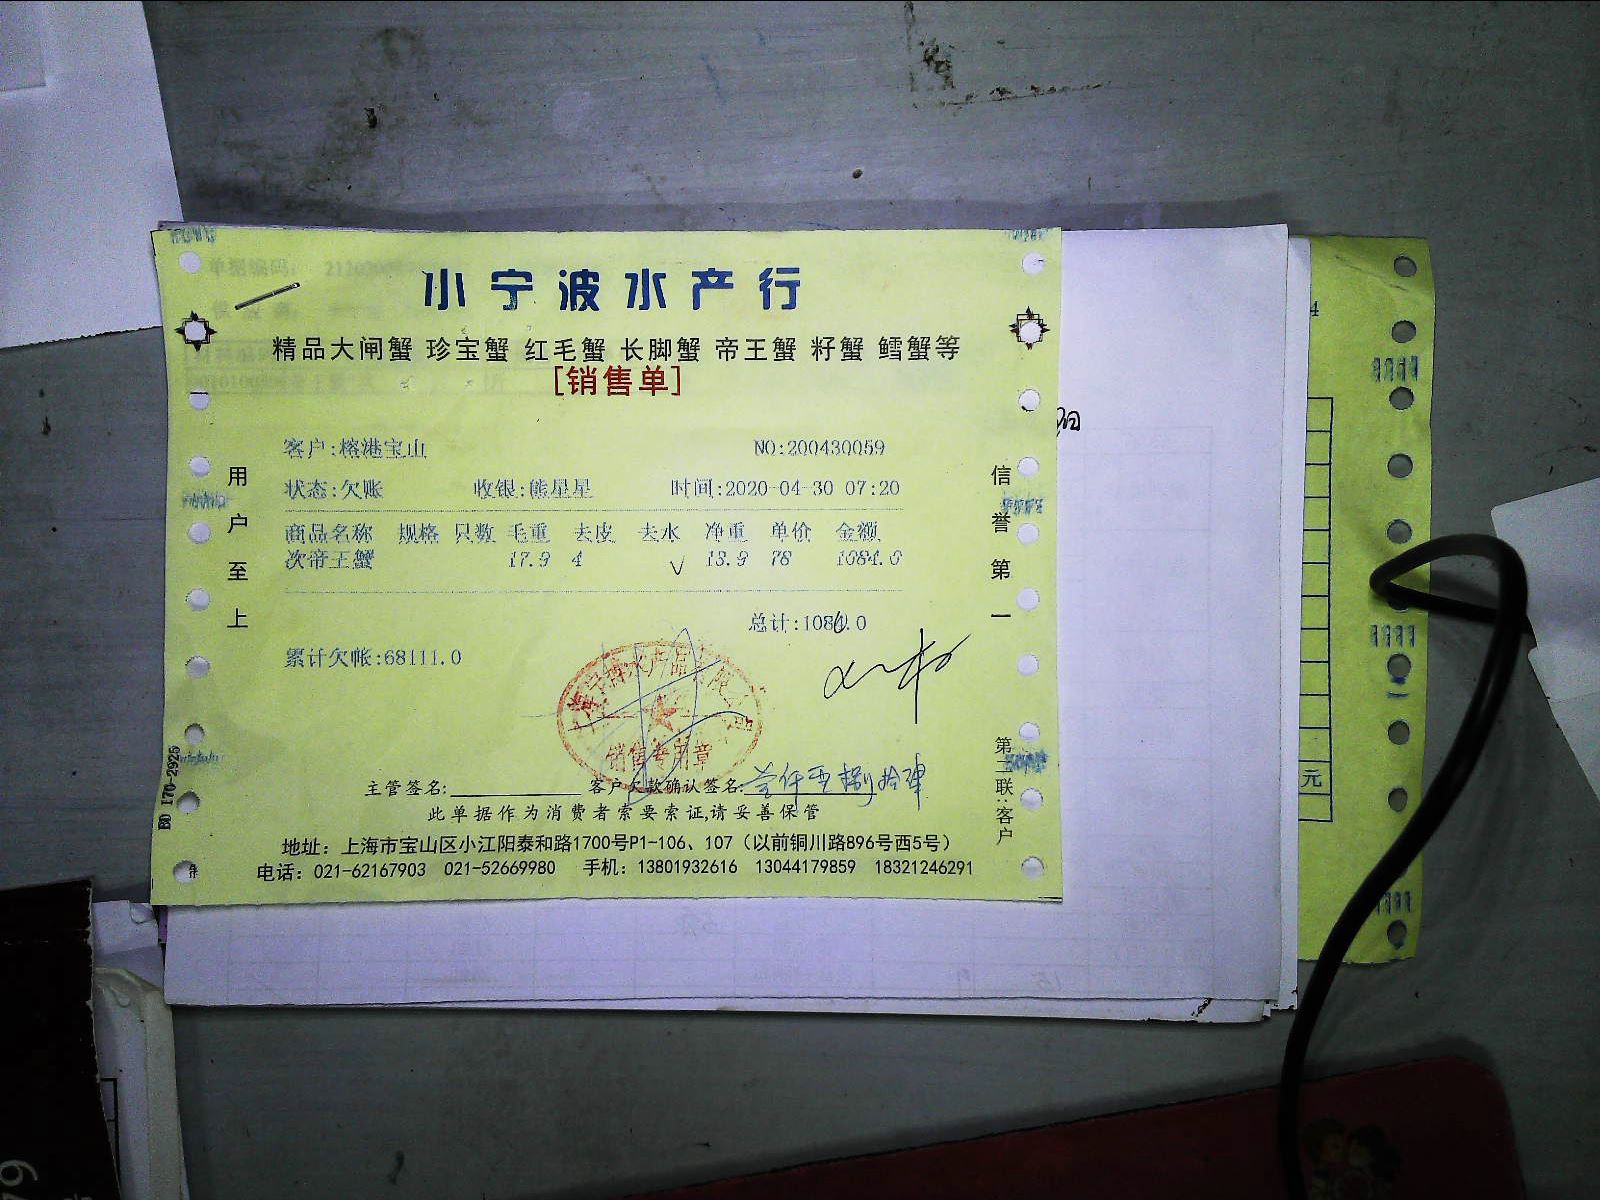 小宁波水产行
精品大闸蟹 珍宝蟹 红毛蟹 长脚蟹 帝王蟹 籽蟹 鳕蟹等
[销售单]
客户:榕港宝山 NO:200430059
状态:欠账 收银:熊星星 时间:2020-04-30 07:20
商品名称 规格 只数 毛重 去皮 去水 净重 单价 金额
次帝王蟹 17.9 4 √ 13.9 78 1084.0
总计:1084.0
累计欠帐:68111.0
用户至上
信誉第一
销售专用章
主管签名: 客户欠款确认签名: 壹仟零捌拾肆
此单据作为消费者索要索证,请妥善保管
地址：上海市宝山区小江阳泰和路1700号P1-106、107（以前铜川路896号西5号）
电话：021-62167903 021-52669980 手机：13801932616 13044179859 18321246291
第二联:客户
BD 170-2925
阳
元